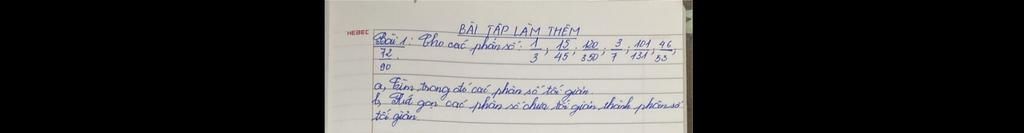 BÀI TẬP LÀM THÊM
HEBEC
Bài 1: Cho các phân số: 1/3; 15/45; 120/350; 3/7; 101/131; 46/53;
72/90
a, Tìm trong đó các phân số tối giản.
b, Rút gọn các phân số chưa tối giản thành phân số
tối giản.